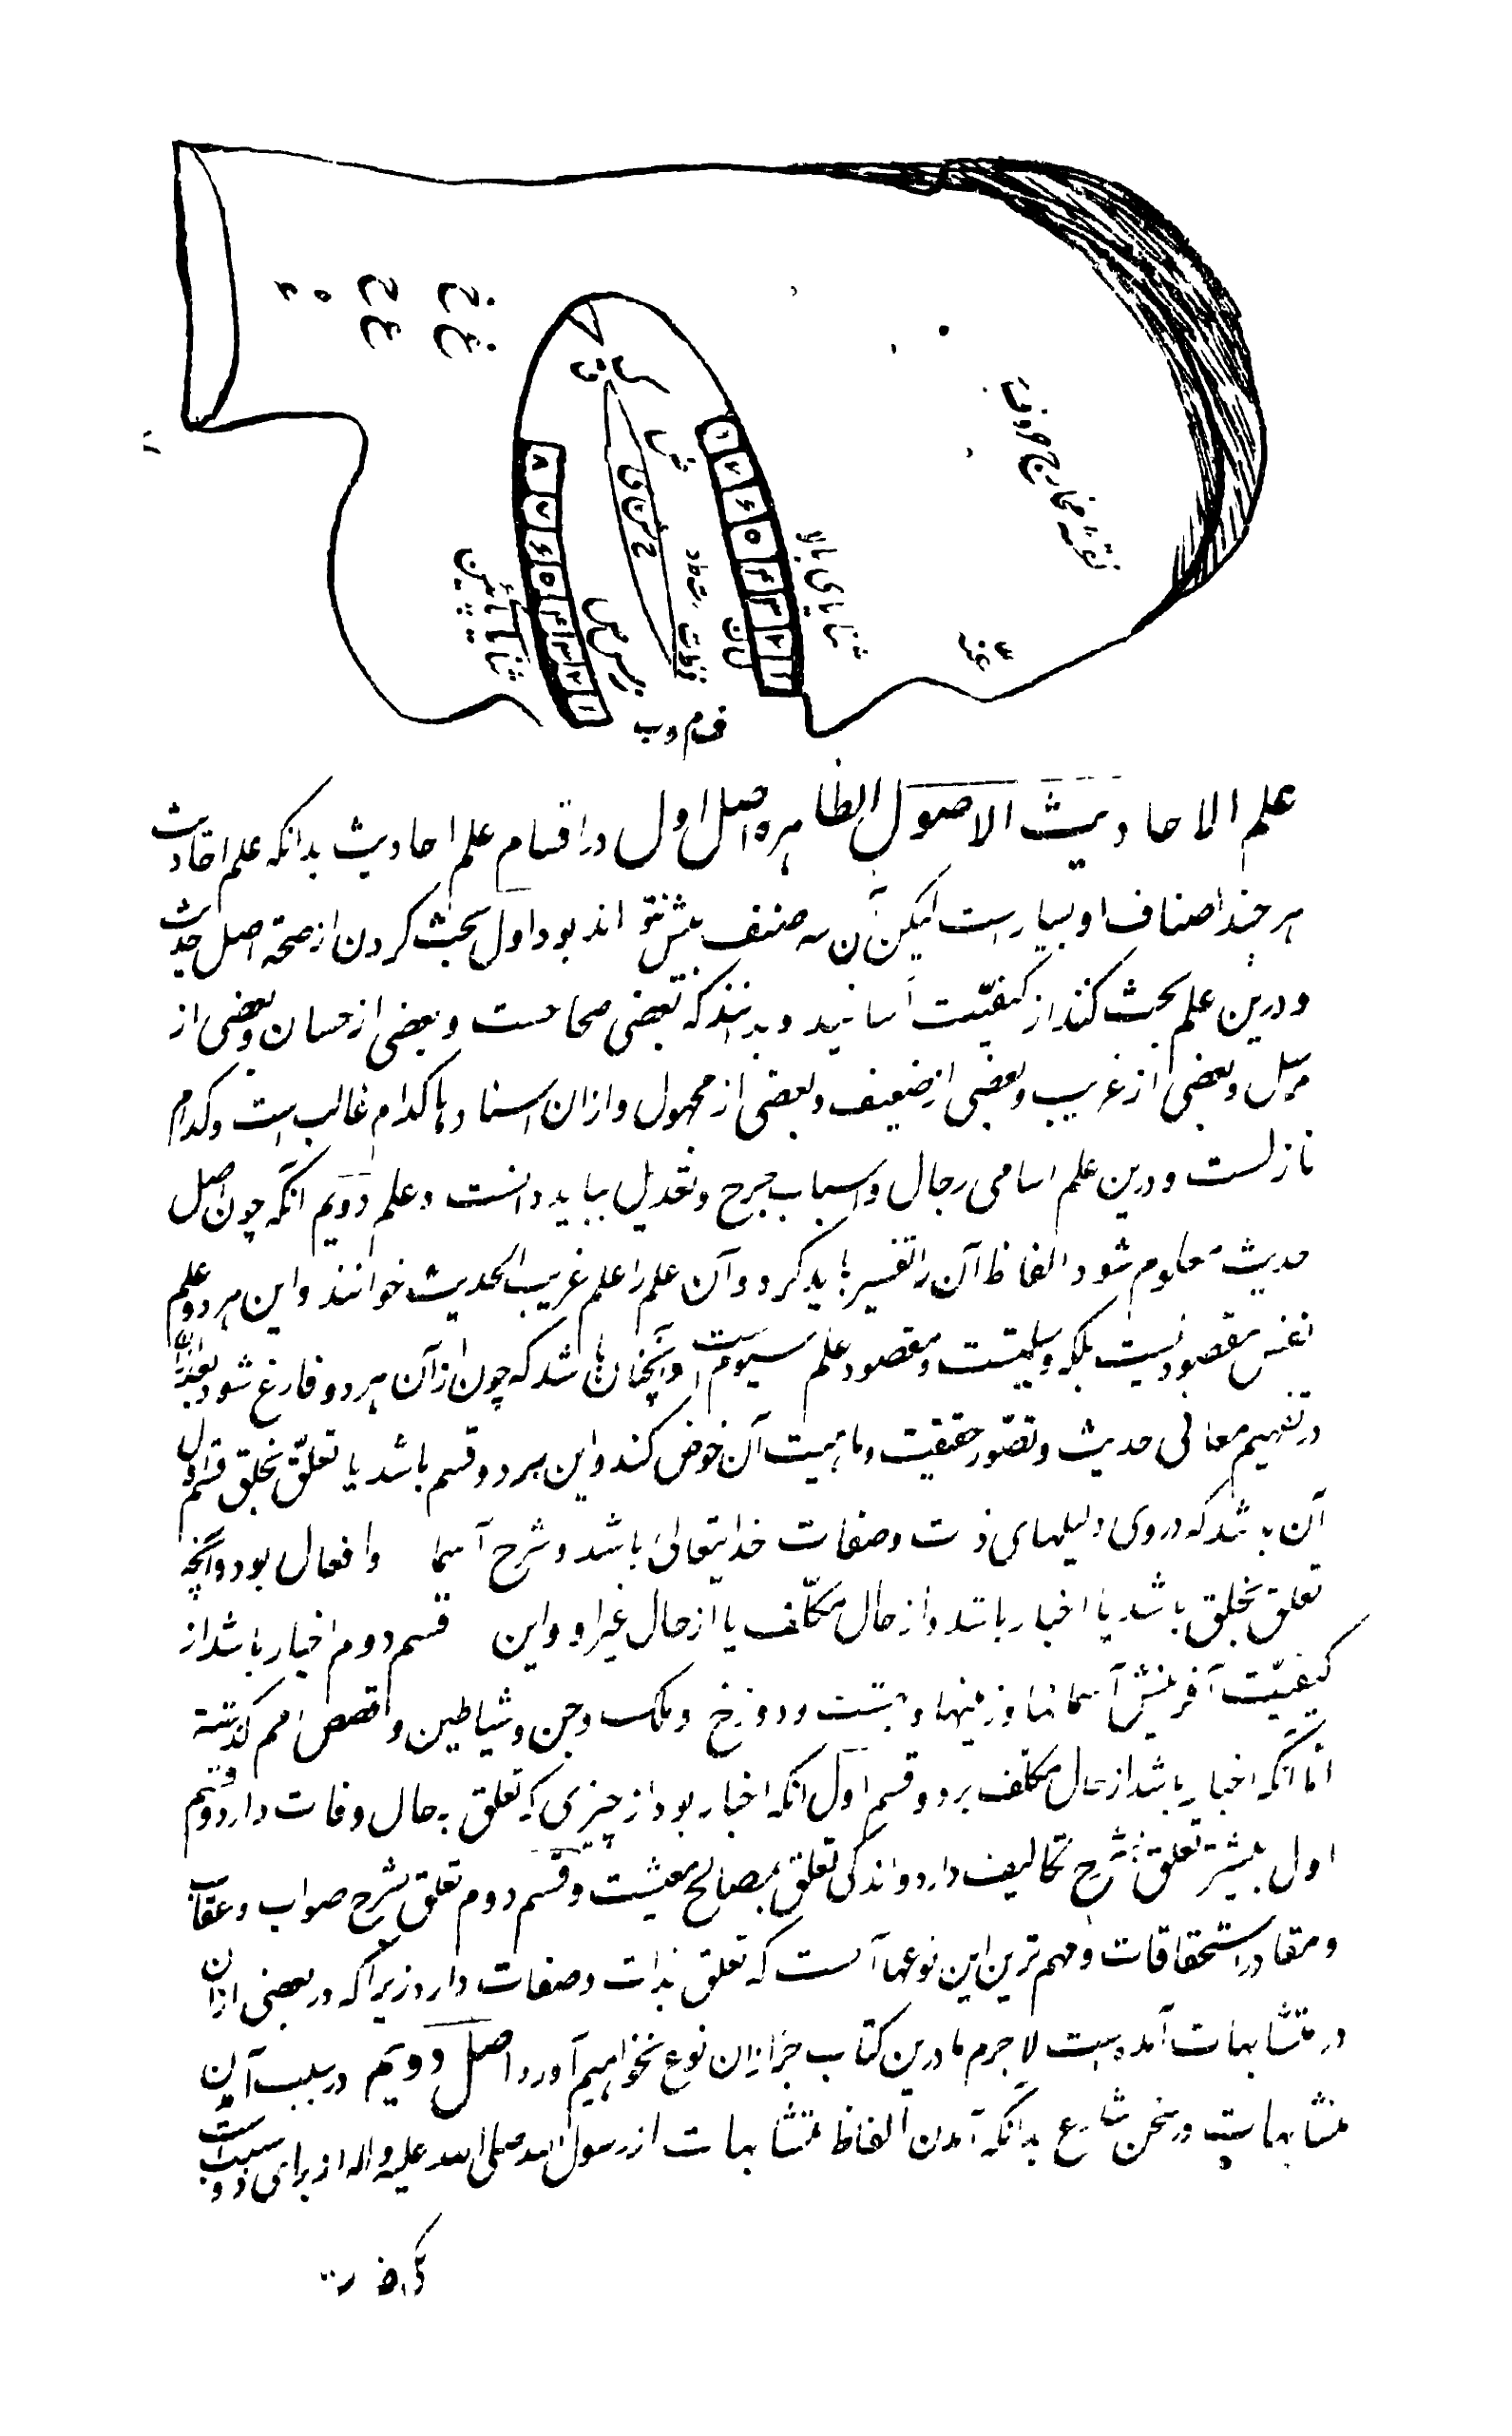 غ خ
ع ح
ء ه
ق
ک
ج ش ی
نقشه مخارج حروف
ثنایای بالا
ثنایای پائین
ف م و ب
علم الاحادیث الاصول الظاهره اصل اول در اقسام علم احادیث بدانکه علم احادیث
هر چند اصناف او بسیار است لیکن آن سه صنف بیش نتو اند بود اول بحث کردن از صحة اصل حدیث
و درین علم بحث کنند از کیفیّت اسانید و بدانند که بعضی صحاحست و بعضی از حسان و بعضی از
مرسل و بعضی از غریب و بعضی از ضعیف و بعضی از مجهول و ازان اسنادها کدام غالب است و کدام
نازلست و درین علم اسامی رجال و اسباب جرح و تعدیل بباید دانست و علم دویم آنکه چون اصل
حدیث معلوم شود الفاظ آن را تفسیر باید کرد و آن علم را علم غریب الحدیث خوانند و این هر دو علم
نفس مقصود نیست بلکه وسیلتست و مقصود علم سیوم است و آنچنان باشد که چون از آن هر دو فارغ شود بعدازان
در تفهیم معانی حدیث و تصّور حقیقت و ماهیت آن خوض کند و این بر دو قسم باشد یا تعلّق بخلق قسم اول
آن باشد که در وی دلیلهای ذات و صفات خدایتعالی باشد و شرح اسما و افعال بود و آنچه
تعلق بخلق باشد یا اخبار باشد و از حال مکلّف یا از حال غیر او و این قسم دوم اخبار باشد از
کیفیّت آفرینش آسمانها و زمینها و بهشت و دوزخ و ملک و جن و شیاطین و قصص امم گذشته
اما آنکه اخبار باشد از حال مکلف بر دو قسم اول آنکه اخبار بود از چیزی که تعلق به حال وفات دارد و قسم
اول بیشتر تعلق بشرح تکالیف دارد و اندکی تعلق بمصالح معیشت و قسم دوم تعلق بشرح صواب و عقاب
و مقادر استحقاقات و مهم ترین این نوعها آنست که تعلق بذات و صفات دارد زیرا که در بعضی ازان
در متشابهات آمده است لا جرم ما درین کتاب جز ازان نوع نخواهیم آورد اصل دویم در سبب آمدن
متشابهات در سخن شارع بدانکه آمدن الفاظ متشابهات از رسول الله صلی الله علیه و اله از برای دو سبب است